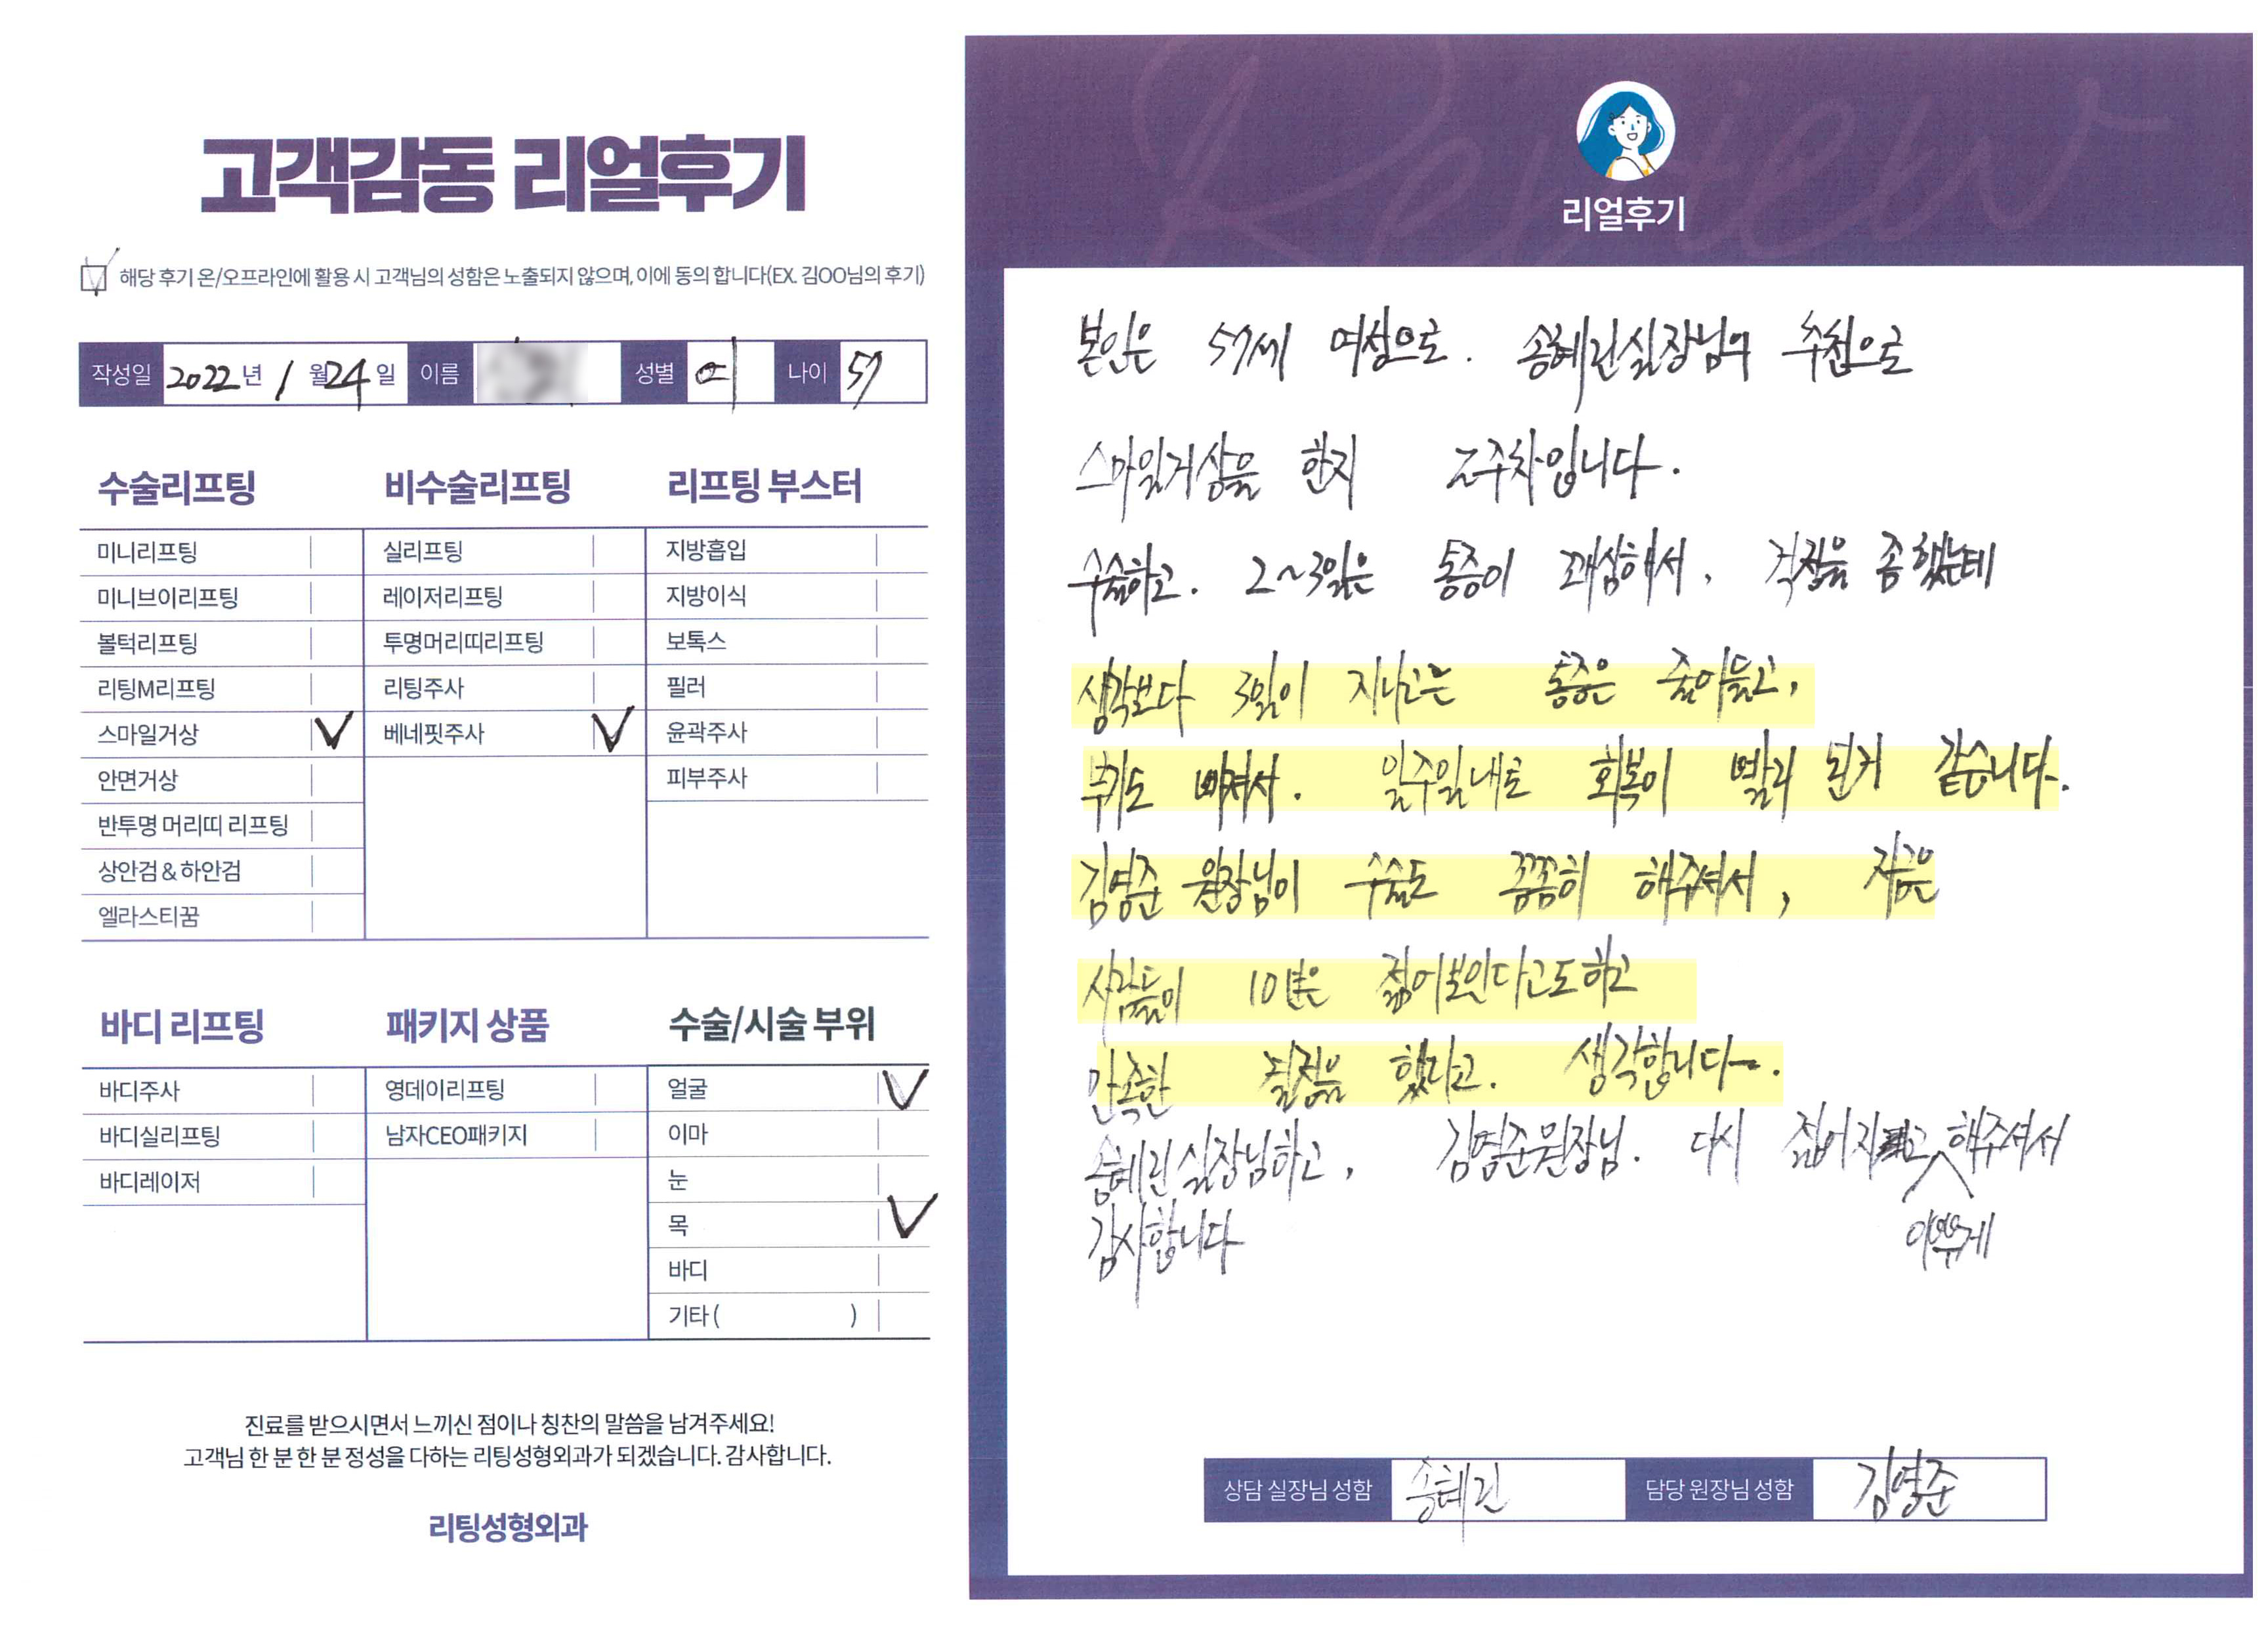 고객감동 리얼후기
해당 후기 온/오프라인에 활용 시 고객님의 성함은 노출되지 않으며, 이에 동의 합니다(EX. 김OO님의 후기)
작성일 2022년 1월 24일 이름 성별 여 나이 57
수술리프팅
미니리프팅
미니브이리프팅
볼턱리프팅
리팅M리프팅
스마일거상 V
안면거상
반투명 머리띠 리프팅
상안검 & 하안검
엘라스티꿈
비수술리프팅
실리프팅
레이저리프팅
투명머리띠리프팅
리팅주사
베네핏주사 V
리프팅 부스터
지방흡입
지방이식
보톡스
필러
윤곽주사
피부주사
바디 리프팅
바디주사
바디실리프팅
바디레이저
패키지 상품
영데이리프팅
남자CEO패키지
수술/시술 부위
얼굴 V
이마
눈
목 V
바디
기타 ( )
진료를 받으시면서 느끼신 점이나 칭찬의 말씀을 남겨주세요!
고객님 한 분 한 분 정성을 다하는 리팅성형외과가 되겠습니다. 감사합니다.
리팅성형외과
Review
리얼후기
본인은 57세 여성으로. 송혜린실장님의 추천으로
스마일거상을 한지 2주차입니다.
수술하고. 2~3일은 통증이 괘심해서, 걱정을 좀 했는데
생각보다 3일이 지나고는 통증은 줄어들고,
붓기도 빠져서. 일주일내로 회복이 빨리 된거 같습니다.
김영준 원장님이 수술도 꼼꼼히 해주셔서, 지금은
사람들이 10년은 젊어보인다고도하고
만족한 결정을 했다고. 생각합니다.
송혜린실장님하고, 김영준원장님. 다시 젊어지고 이쁘게 해주셔서
감사합니다
상담 실장님 성함 송혜린 담당 원장님 성함 김영준